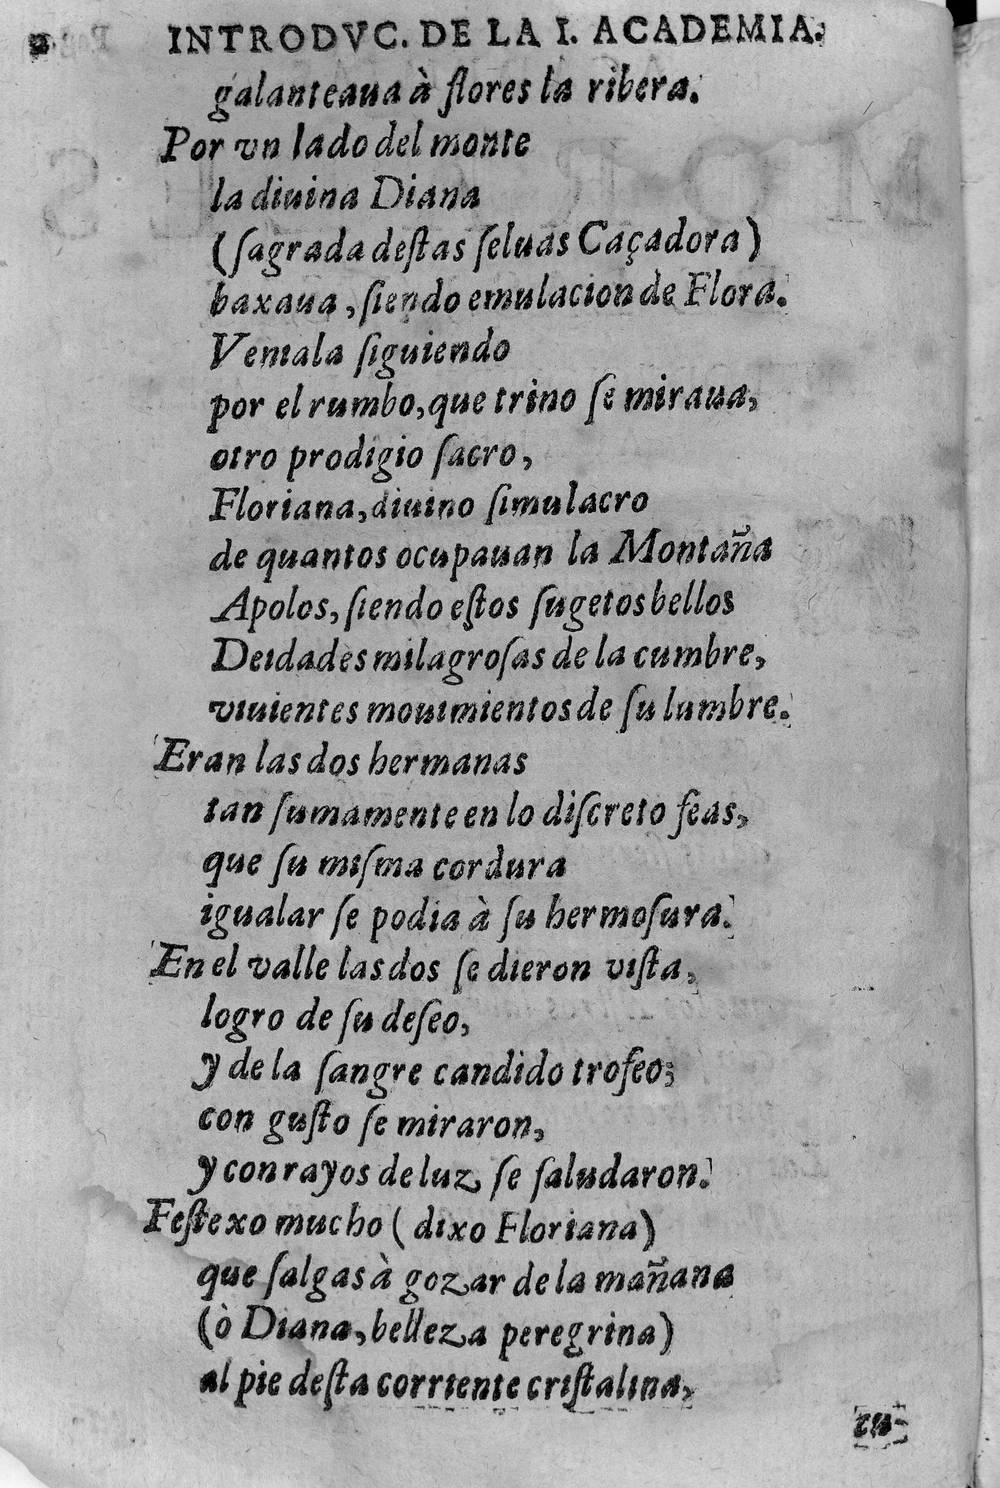 2
INTRODVC. DE LA I. ACADEMIA.
galanteaua à flores la ribera.
Por vn lado del monte
la diuina Diana
(ſagrada deſtas ſeluas Caçadora)
baxaua, ſiendo emulacion de Flora.
Veniala ſiguiendo
por el rumbo, que trino ſe miraua,
otro prodigio ſacro,
Floriana, diuino ſimulacro
de quantos ocupauan la Montaña
Apolos, ſiendo eſtos ſugetos bellos
Deidades milagroſas de la cumbre,
viuientes mouimientos de ſu lumbre.
Eran las dos hermanas
tan ſumamente en lo diſcreto feas,
que ſu miſma cordura
igualar ſe podia à ſu hermoſura.
En el valle las dos ſe dieron viſta,
logro de ſu deſeo,
y de la ſangre candido trofeo;
con guſto ſe miraron,
y con rayos de luz ſe ſaludaron.
Feſtexo mucho ( dixo Floriana)
que ſalgas à gozar de la mañana
(ò Diana, belleza peregrina)
al pie deſta corriente criſtalina,
cu-